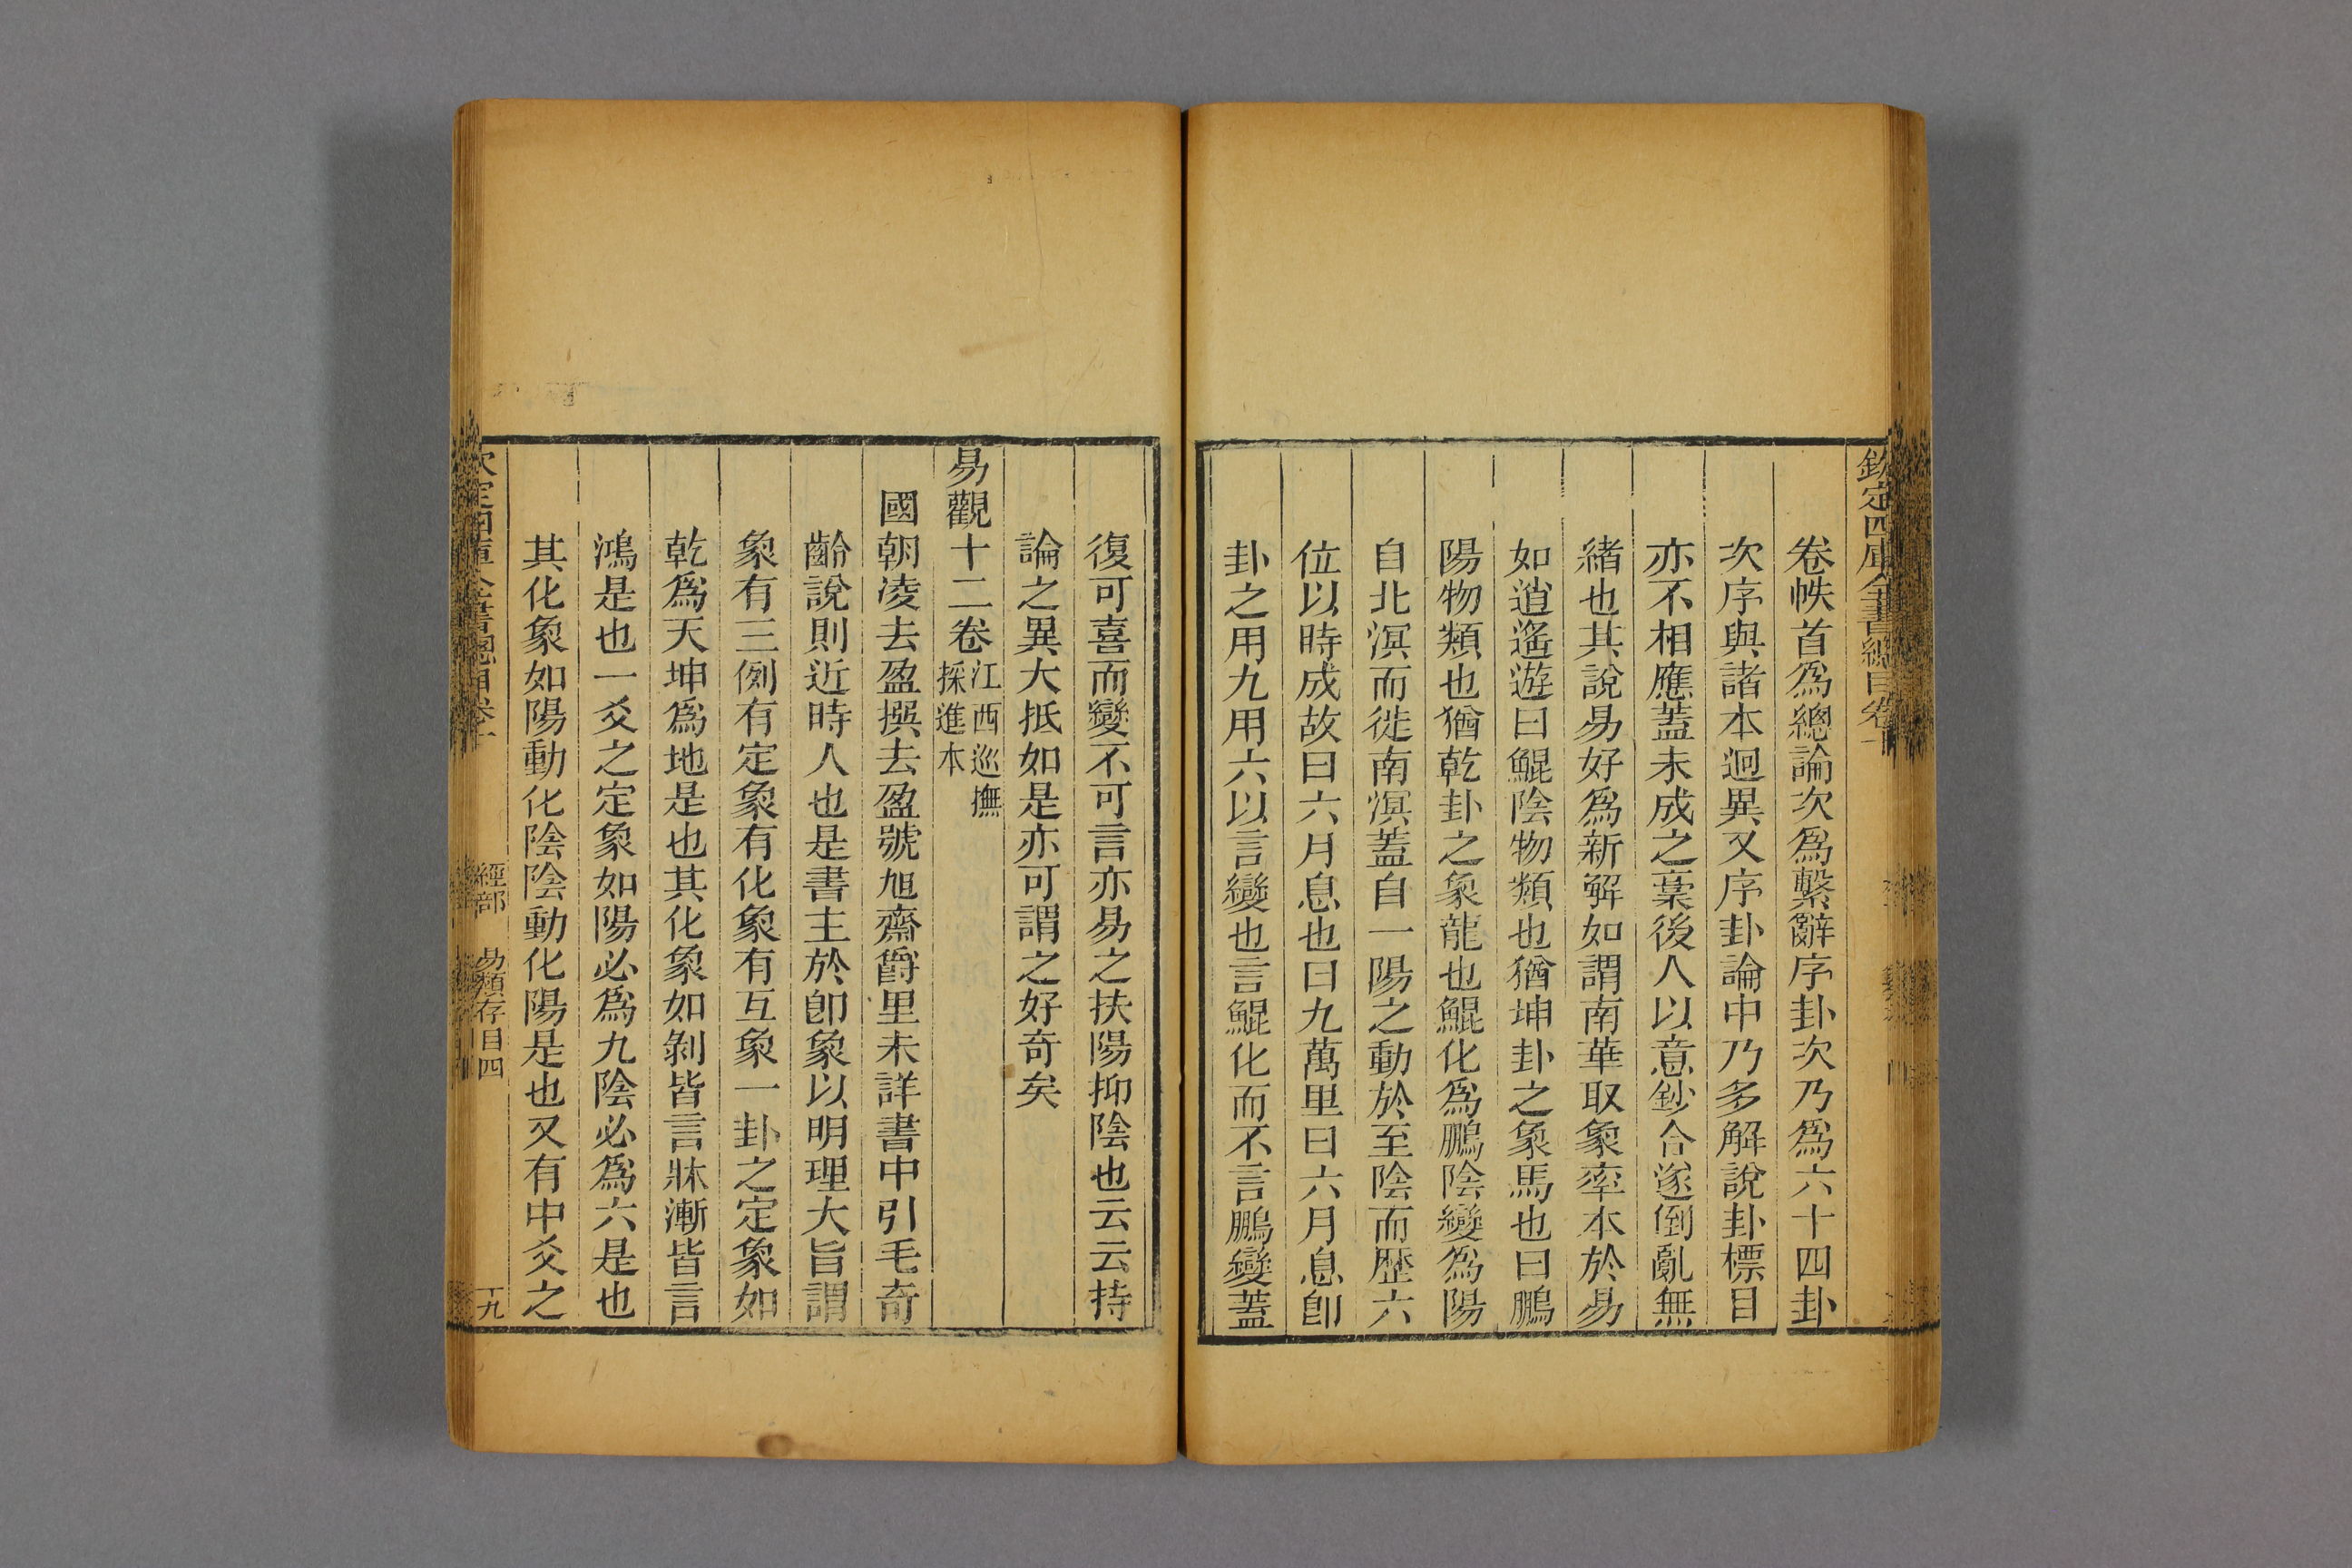 欽定四庫全書總目卷十
卷帙首爲總論次爲繫辭序卦次乃爲六十四卦
次序與諸本迥異又序卦論中乃多解說卦標目
亦不相應蓋未成之槀後人以意鈔合遂倒亂無
緒也其說易好爲新解如謂南華取象率本於易
如逍遙遊曰鯤陰物類也猶坤卦之象馬也曰鵬
陽物類也猶乾卦之象龍也鯤化爲鵬陰變爲陽
自北溟而徙南溟蓋自一陽之動於至陰而歷六
位以時成故曰六月息也曰九萬里曰六月息卽
卦之用九用六以言變也言鯤化而不言鵬變蓋
復可喜而變不可言亦易之扶陽抑陰也云云持
論之異大抵如是亦可謂之好奇矣
易觀十二卷江西巡撫
採進本
國朝凌去盈撰去盈號旭齋爵里未詳書中引毛奇
齡說則近時人也是書主於卽象以明理大旨謂
象有三例有定象有化象有互象一卦之定象如
乾爲天坤爲地是也其化象如剝皆言牀漸皆言
鴻是也一爻之定象如陽必爲九陰必爲六是也
其化象如陽動化陰陰動化陽是也又有中爻之
欽定四庫全書總目卷十 經部 易類存目四 十九